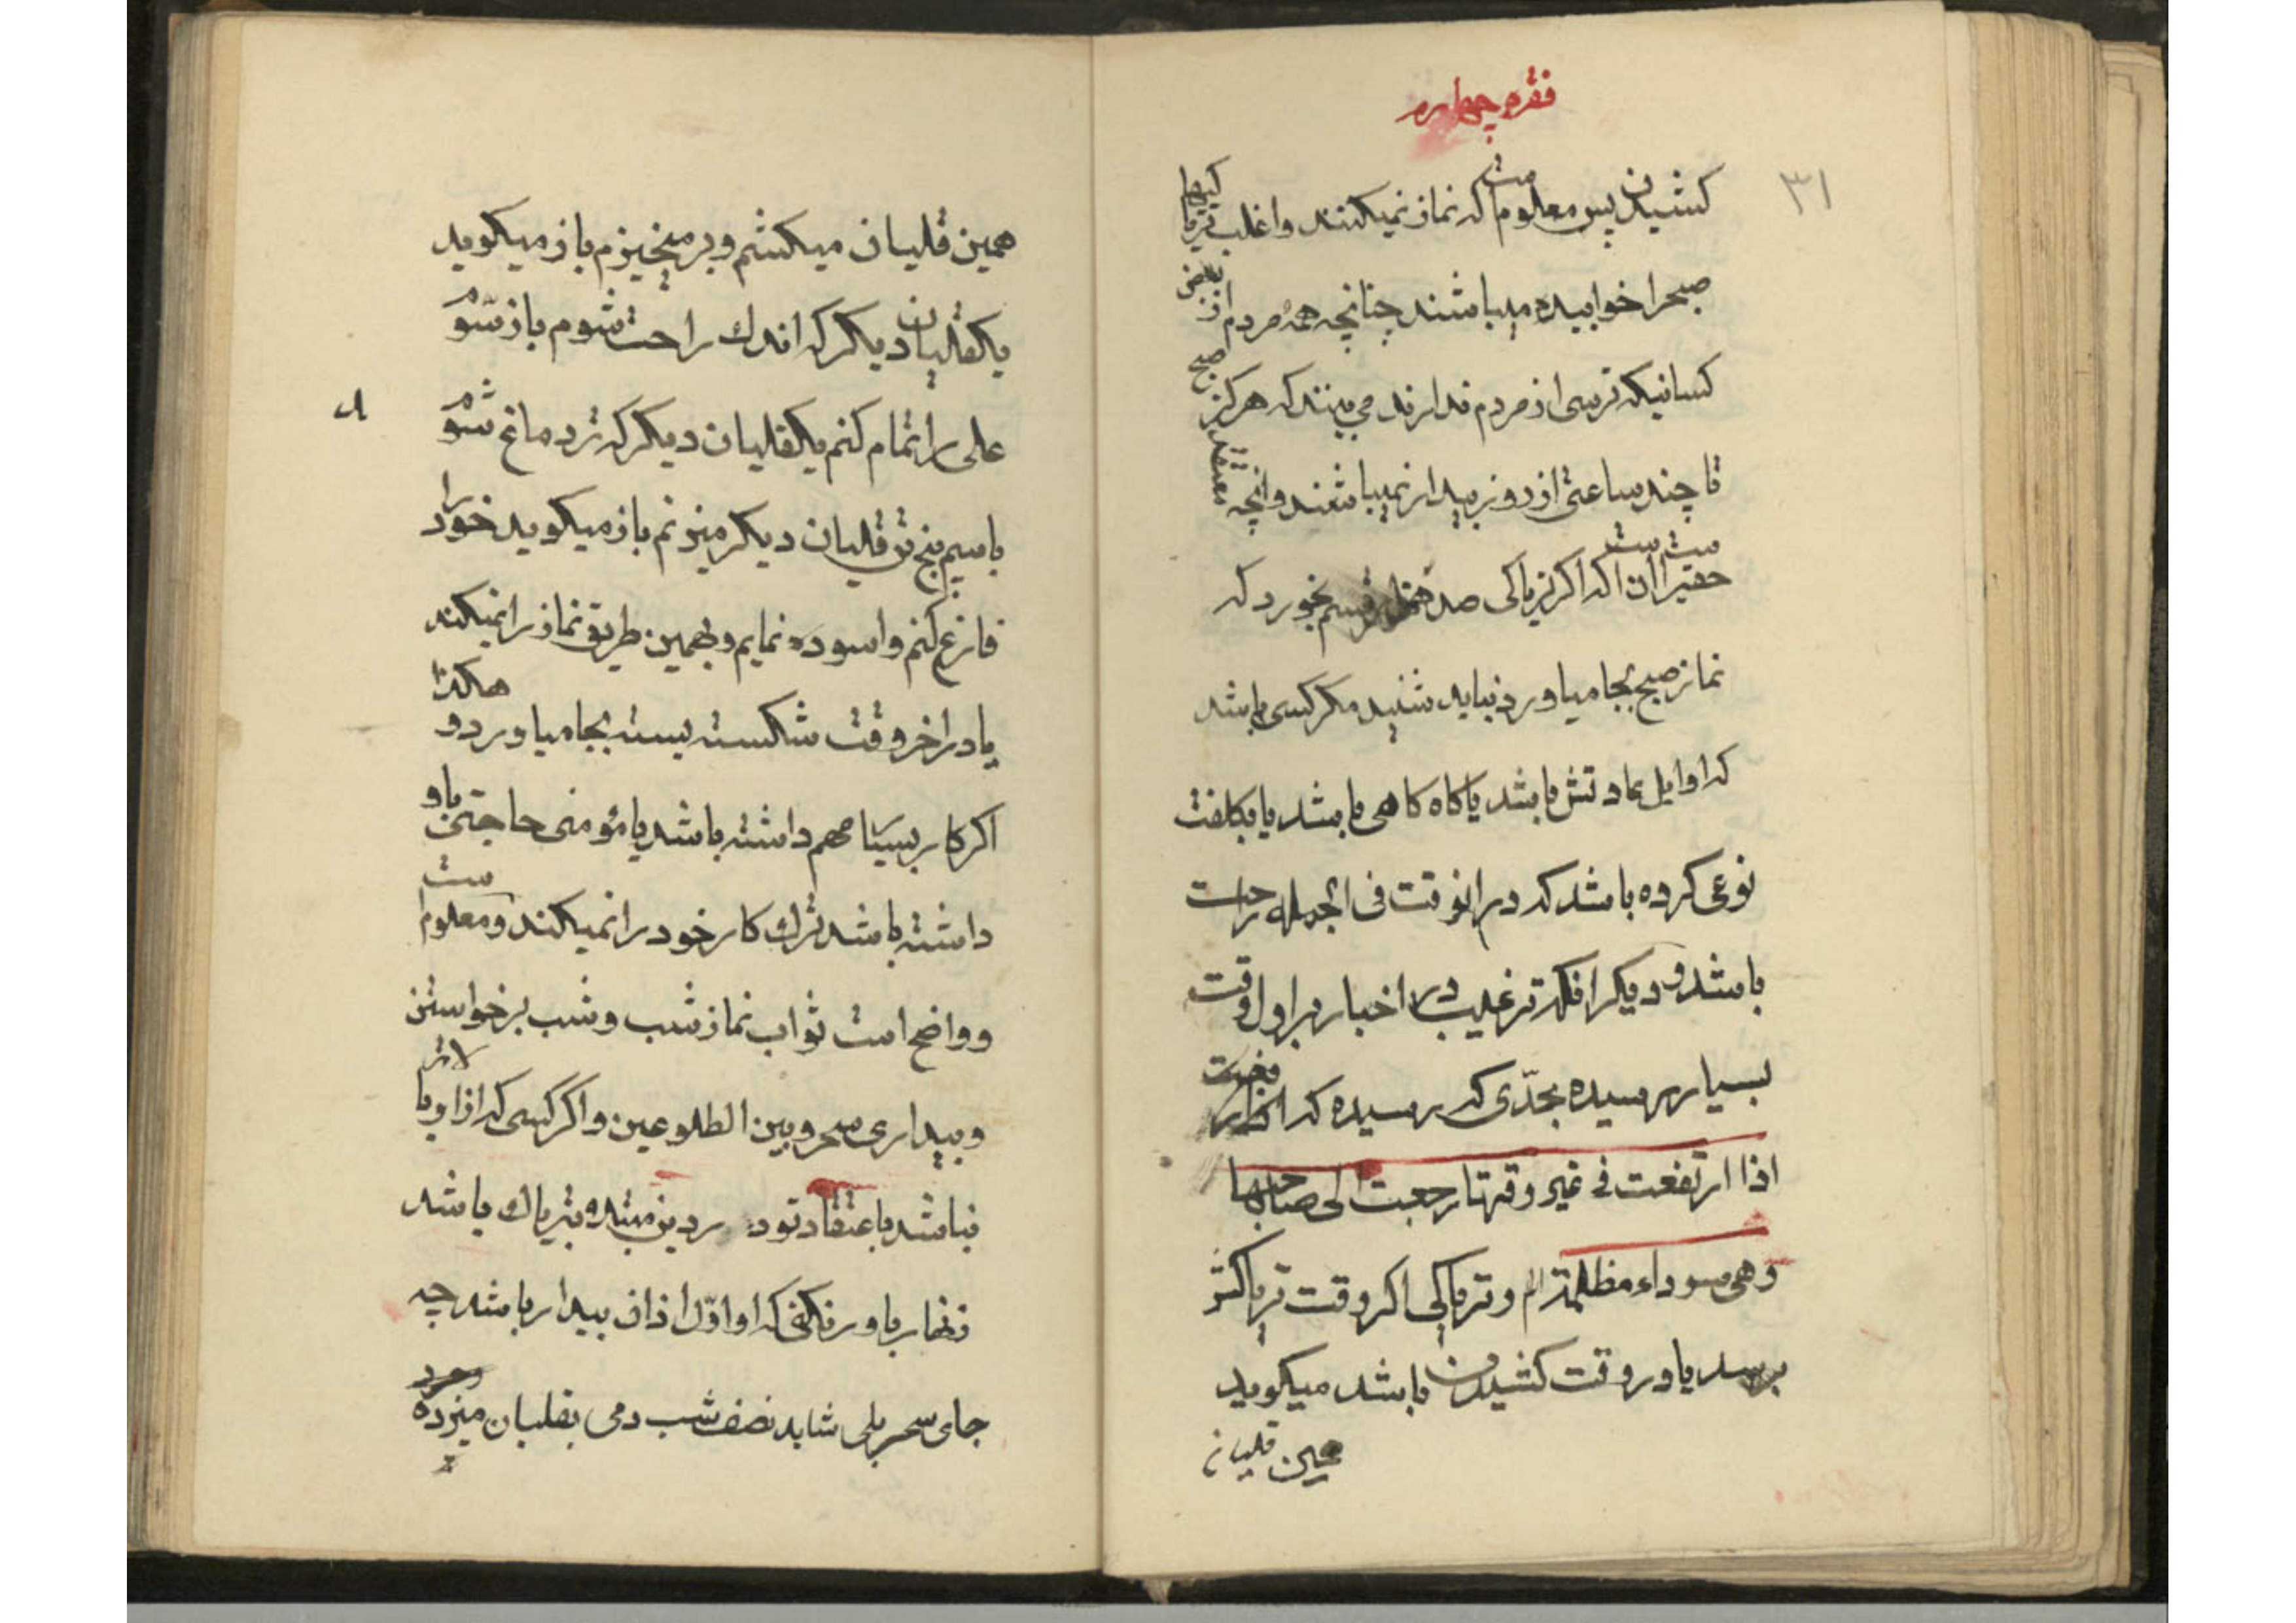 فقره چهارم
۳۱
کشیدن پس معلوم است که نماز نمیکنند و اغلب تریاکیها
صبح را خوابیده میباشند چنانچه همهٔ مردم از بعضی
کسانیکه ترسی از مردم ندارند می بینند که هرکز صبح
تا چند ساعتی از روز بیدار نمیباشند و آنچه معتقد
حقیر است آن است که اکر تریاکی صد هزار قسم بخورد که
نماز صبح بجا میاورد نباید شنید مکر کسی باشد
که اوایل عادتش باشد یا کاه کاهی باشد یا بکلفت
نوعی کرده باشد که در انوقت فی الجمله راحت
باشد و دیکر انکه ترغیب در اخبار بر اول وقت
بسیار رسیده بحدّی که رسیده که
اذا ارتفعت فی غیر وقتها رجعت الی صاحبها
و هی سوداء مظلمة الم و تریاکی اکر وقت تریاکش
برسد یا در وقت کشیدن باشد میکوید
همین قلیان
همین قلیان میکشم و بر میخیزم باز میکوید
یکقلیان دیکر که اندك راحت شوم باز
علی را تمام کنم یکقلیان دیکر که تر دماغ شوم
باسم پنج تن قلیان دیکر میزنم باز میکوید خود را
فارغ کنم و اسوده نمایم و بهمین طریق نماز را نمیکند
یا در اخر وقت شکسته بسته بجا میاورد و هکذا
اکر کار بسیار مهم داشته باشد یا مؤمنی حاجتی باو
داشته باشد ترك کار خود را نمیکند و معلوم است
و واضح است ثواب نماز شب و شب برخواستن
و بیداری سحر و بین الطلوعین و اکر کسی که از او بالاتر
نباشد باعتقاد تو در دین مبتلا بتریاك باشد
زنهار باور نکنی که او اوّل اذان بیدار باشد چه
جای سحر بلی شاید نصف شب دمی بقلیان میزده